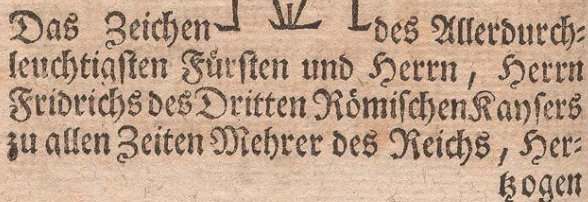 Das Zeichen des Allerdurch⸗
leuchtigſten Fürſten und Herrn, Herrn
Fridrichs des Dritten Römiſchen Kayſers
zu allen Zeiten Mehrer des Reichs, Her⸗
tzogen